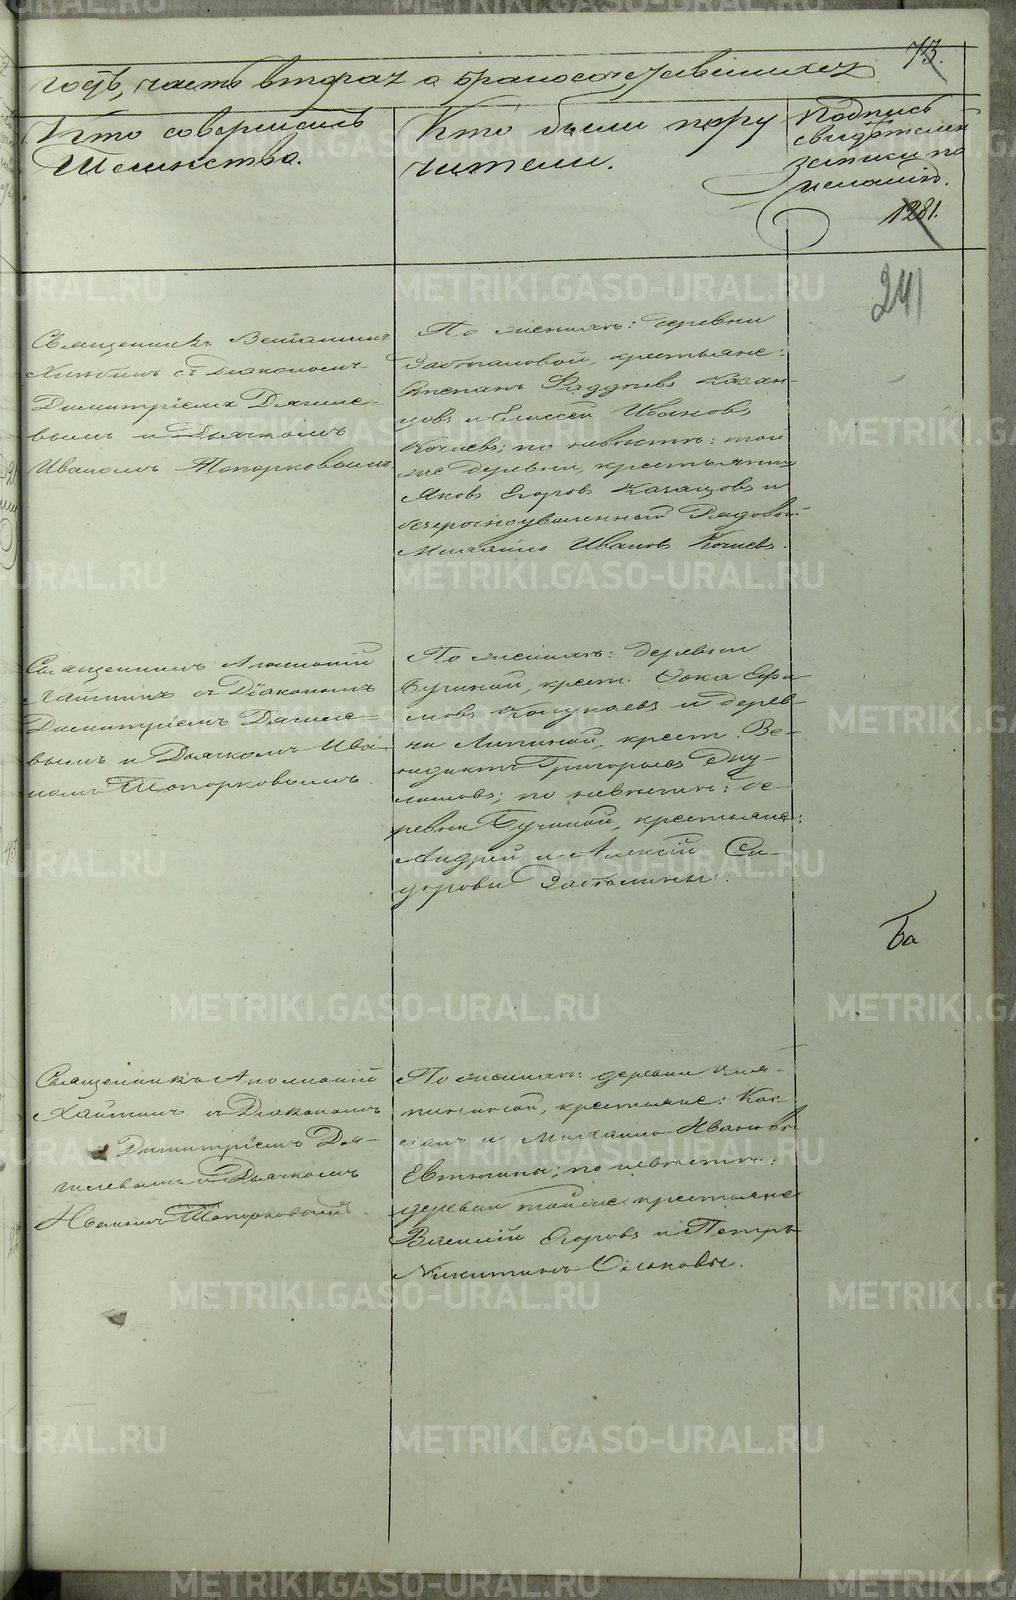 73.
годъ, часть вторая о бракосочетавшихся
Кто совершилъ
Таинство.
Кто были пору
чители.
Подпись
свидѣтелей
записи по
желанію.
1281.
241
Священникъ Веніаминъ
съ Діакономъ
Димитріемъ Дягиле-
вымъ и Дьячкомъ
Иваномъ Топорковымъ.
По женихѣ: деревни
крестьяне:
Степанъ Фаддѣевъ Казан-
цовъ и Елисей Ивановъ
Кочневъ; по невѣстѣ: той
же деревни, крестьянинъ
Яковъ Егоровъ Казанцовъ и
безсрочноуволенный Рядовой
Михайло Ивановъ Кочневъ.
Священникъ Аполлоній
Хайминъ съ Діакономъ
Димитріемъ Дягиле-
вымъ и Дьячкомъ Ива
номъ Топорковымъ.
По женихѣ: деревни
Бучиной, крест. Фока Ефи
мовъ и дерев-
ни Липиной, крест. Ве-
недиктъ Григорьевъ
по невѣстѣ: де-
ревни Бучиной, крестьяне:
Андрей и Алексѣй Си-
доровы
Ба
Священникъ Аполлоній
Хайминъ съ Діакономъ
Димитріемъ Дя-
гилевымъ и Дьячкомъ
Иваномъ Топорковымъ.
По женихѣ: деревни
крестьяне: Кас-
сіанъ и Михайло Ивановы
Евтюгины; по невѣстѣ:
деревни тойже крестьяне
Василій Егоровъ и Петръ
Никитинъ Ольковы.
METRIKI.GASO-URAL.RU